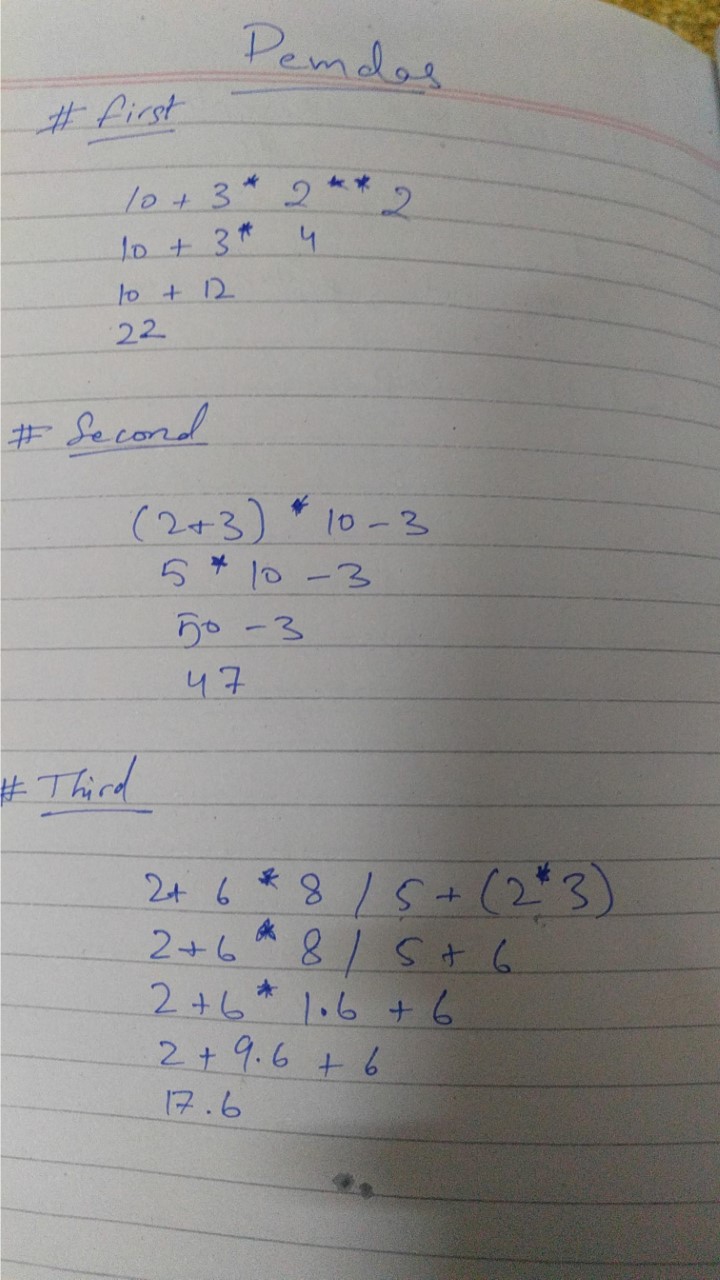 Pemdas
# first
10 + 3 * 2 ** 2
10 + 3 * 4
10 + 12
22
# Second
(2+3) * 10 - 3
5 * 10 - 3
50 - 3
47
# Third
2+ 6 * 8 / 5 + (2*3)
2+6 * 8 / 5 + 6
2+6 * 1.6 + 6
2 + 9.6 + 6
17.6